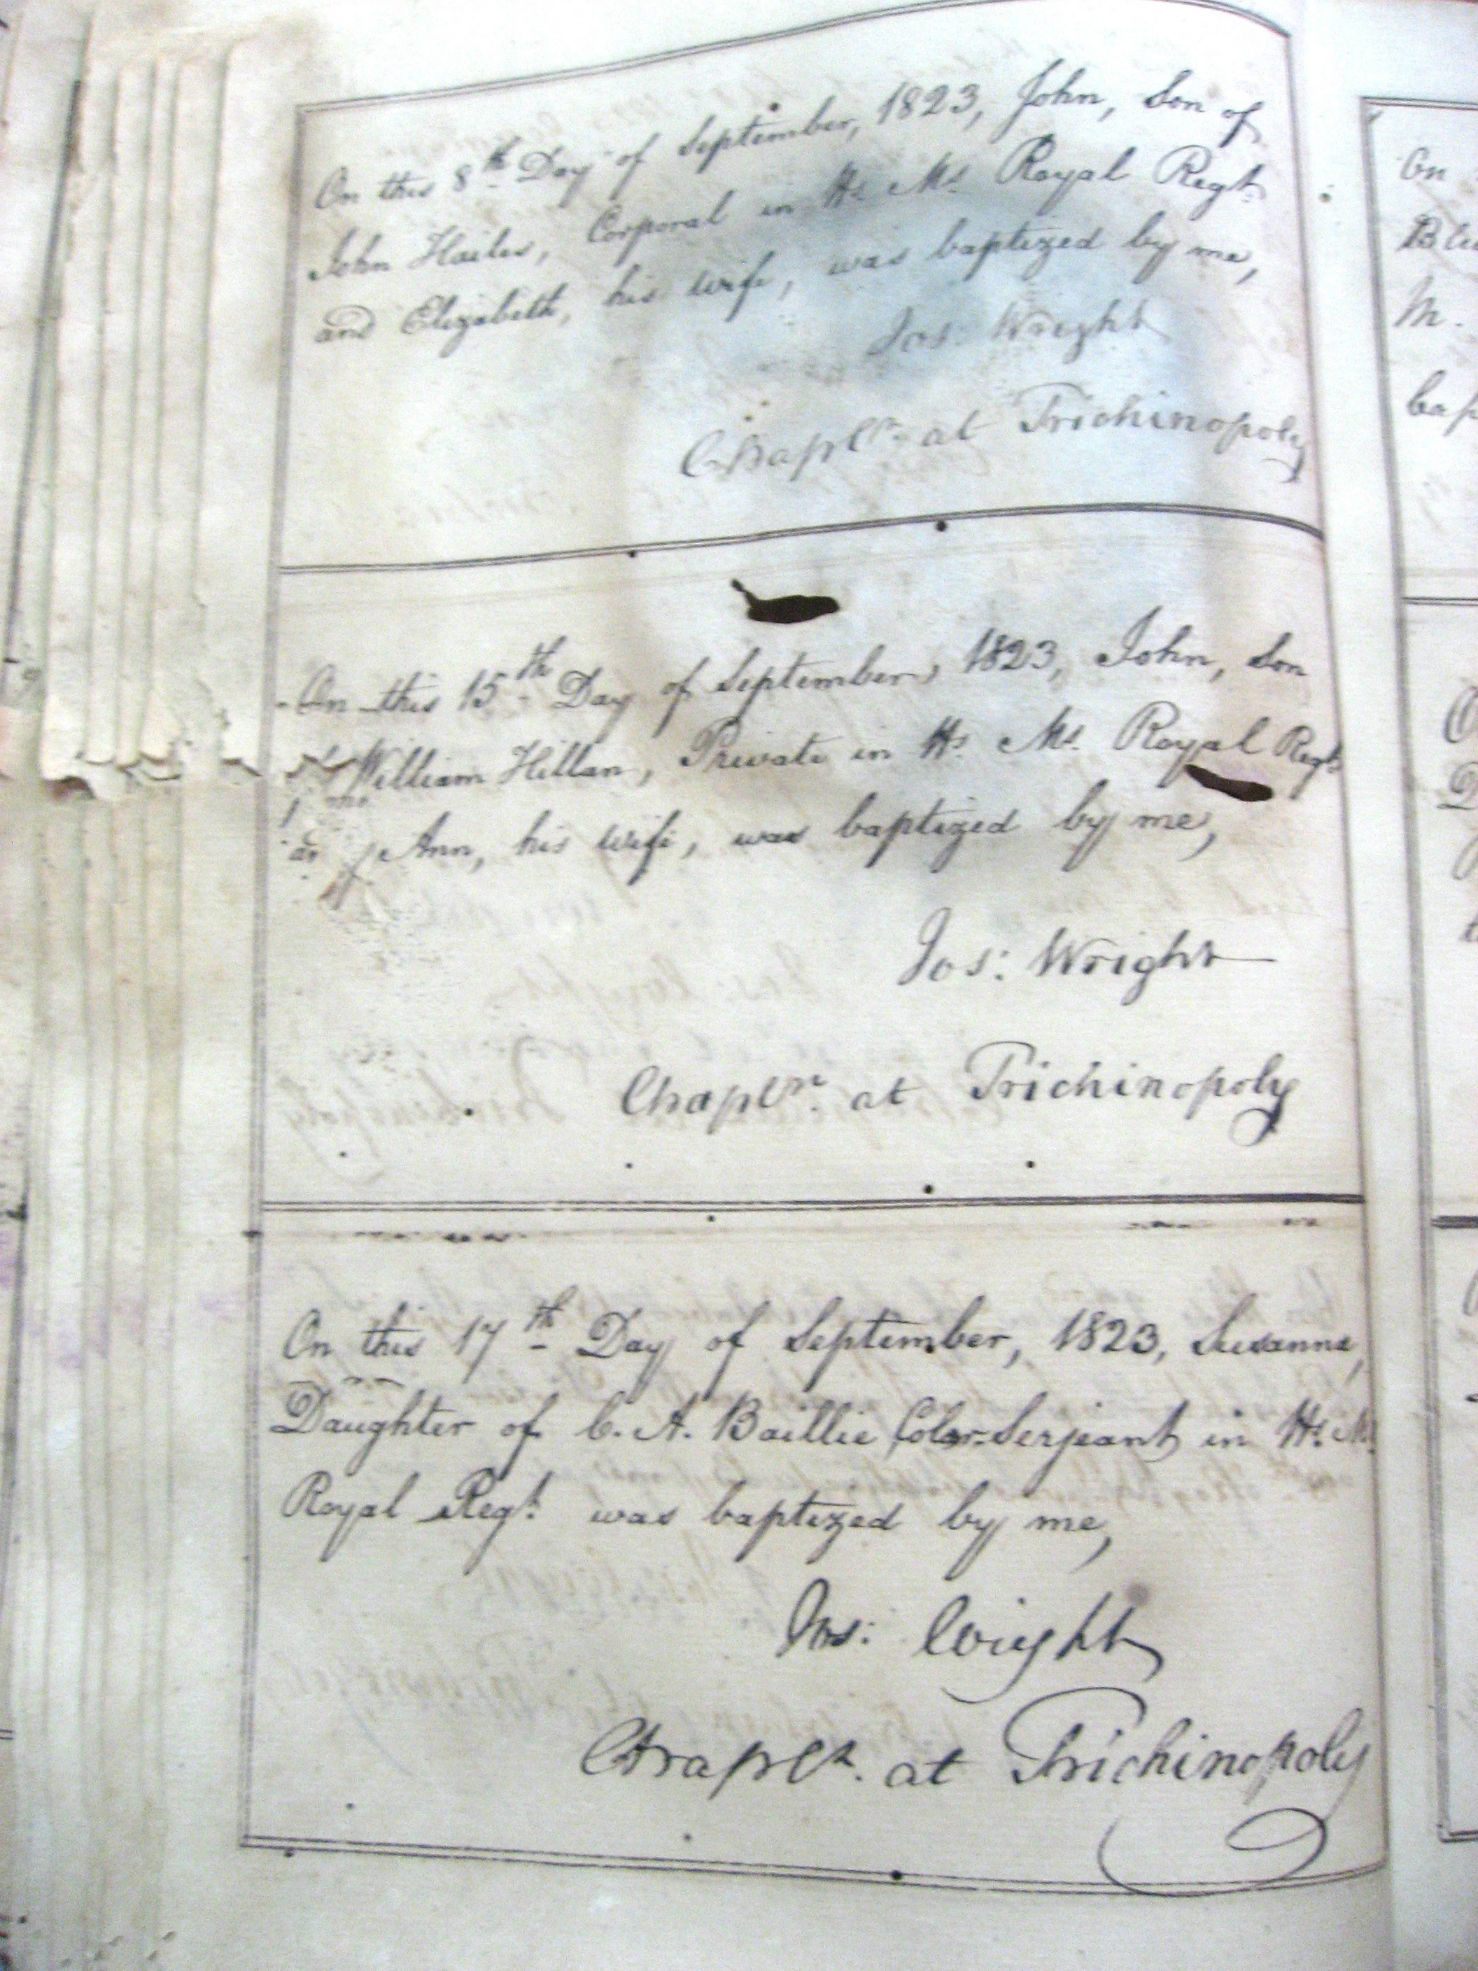 On this 8th Day of September, 1823, John, Son of
John Hailes, Corporal in Hs. Ms. Royal Regt.
and Elizabeth, his wife, was baptized by me,
Jos: Wright
Chapln. at Trichinopoly
On this 15th Day of September, 1823, John, Son
of William Hillan, Private in Hs. Ms. Royal Regt.
Ann, his wife, was baptized by me,
Jos: Wright
Chapln. at Trichinopoly
On this 17th Day of September, 1823, Susanna,
Daughter of C. A. Baillie Color-Serjeant in Hs. Ms.
Royal Regt. was baptized by me,
Jos: Wright
Chapln. at Trichinopoly
On
M.
bap